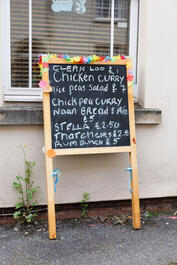 CLEAN LOO £1
CHICKEN CURRY
Rice peas SALAD £7
CHICKPEA CURRY
NAAN BREAD & RICE
£5
STELLA £2.50
THATCHERS £2.50
RUM PUNCH £5